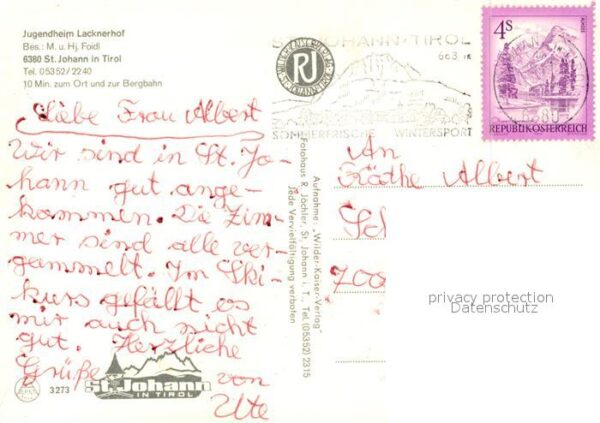 Jugendheim Lacknerhof
Bes.: M. u. Hj. Foidl
6380 St. Johann in Tirol
Tel. 05352/2240
10 Min. zum Ort und zur Bergbahn
Liebe Frau Albert
Wir sind in St. Jo-
hann gut ange-
kommen. Die Zim-
mer sind alle ver-
gammelt. Im Ski-
kurs gefällt es
mir auch nicht
gut. Herzliche
Grüße von
Ute
3273
St. Johann
IN TIROL
Aufnahme: „Wilder-Kaiser-Verlag"
Fotohaus R. Jöchler, St. Johann i. T., Tel. (05352) 2315
Jede Vervielfältigung verboten
RJ
ST. JOHANN · TIROL
663 m
SOMMERFRISCHE WINTERSPORT
4S
REPUBLIK ÖSTERREICH
6380
An
Käthe Albert
Sch
700
privacy protection
Datenschutz